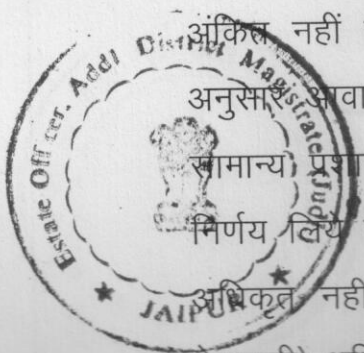 अंकित नहीं
अनुसार आवा
सामान्य प्रशा
निर्णय लिये
अधिकृत नहीं
Estate Officer. Addl District Magistrate (Jud
JAIPUR